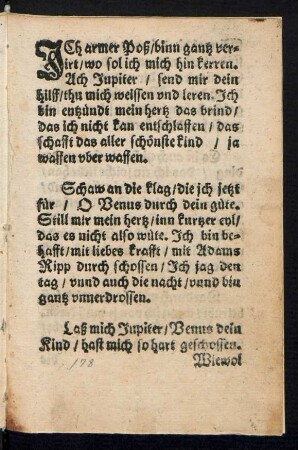 ICh armer Poß/binn gantz ver-
irt/wo sol ich mich hin kerren.
Ach Jupiter / send mir dein
hilff/thu mich weissen vnd leren. Ich
bin entzündt mein hertz das brind/
das ich nicht kan entschlaffen / das
schafft das aller schönste kind / ja
waffen vber waffen.
Schaw an die klag/die ich jetzt
für / O Venus durch dein güte.
Still mir mein hertz/inn kurtzer eyl/
das es nicht also wüte. Ich bin be-
hafft/mit liebes krafft / mit Adams
Ripp durch schossen / Ich jag den
tag / vnnd auch die nacht/vnnd bin
gantz vnuerdrossen.
Laß mich Jupiter/Venus dein
Kind / hast mich so hart geschossen.
Wiewol
173